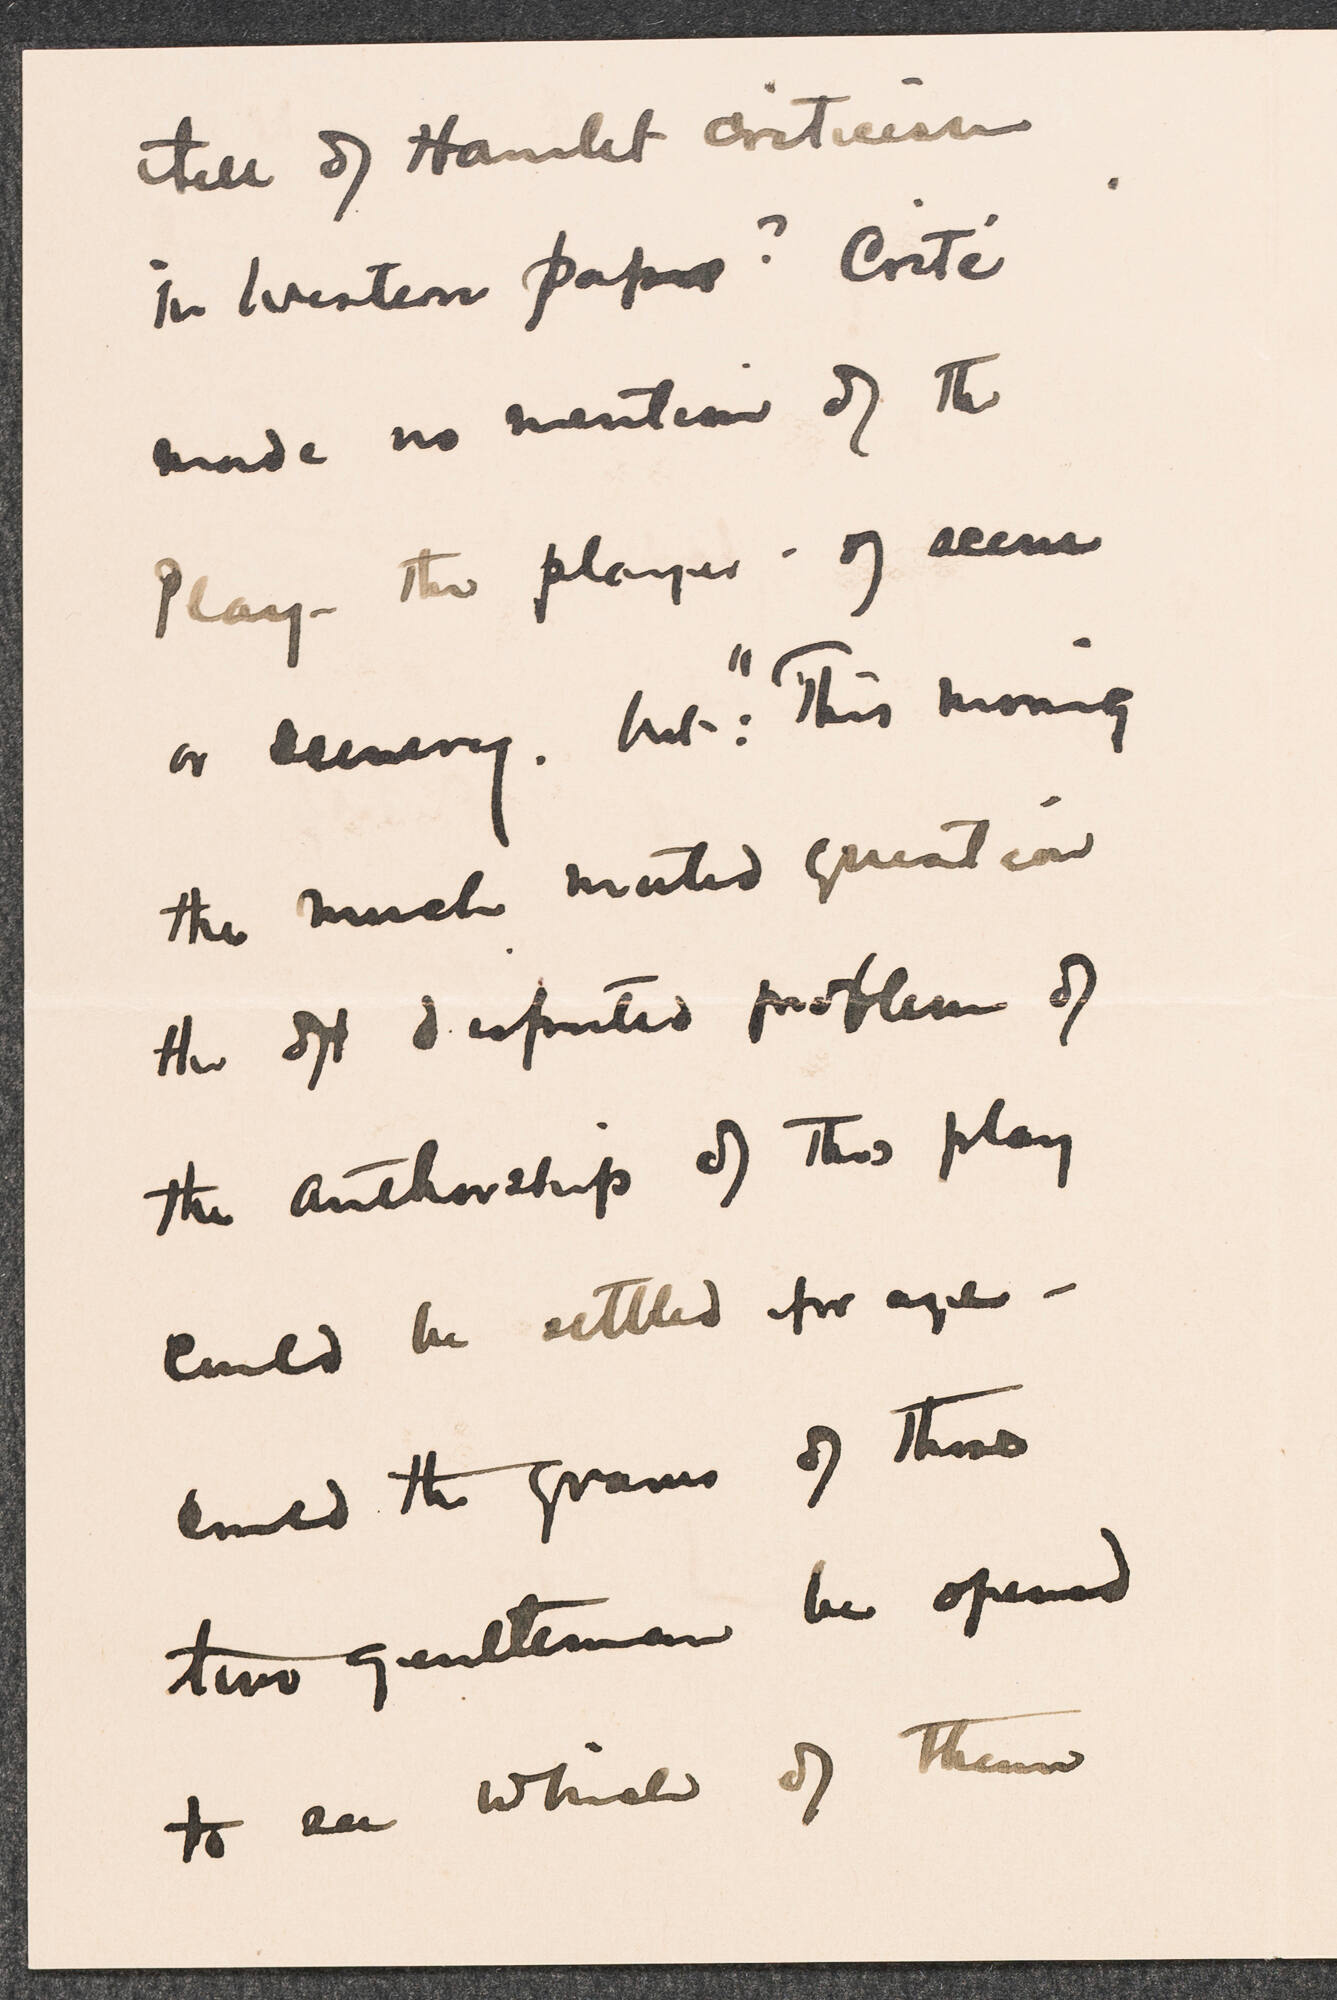 tell of Hamlet criticism
in Western paper? Crite
made no mention of the
Play - the player - of scene
or scenery. but: "This moring
the much muted question
the oft disputed problem of
the authorship of this play
could be settled for ages -
could the graves of those
two gentleman be opened
to see which of them